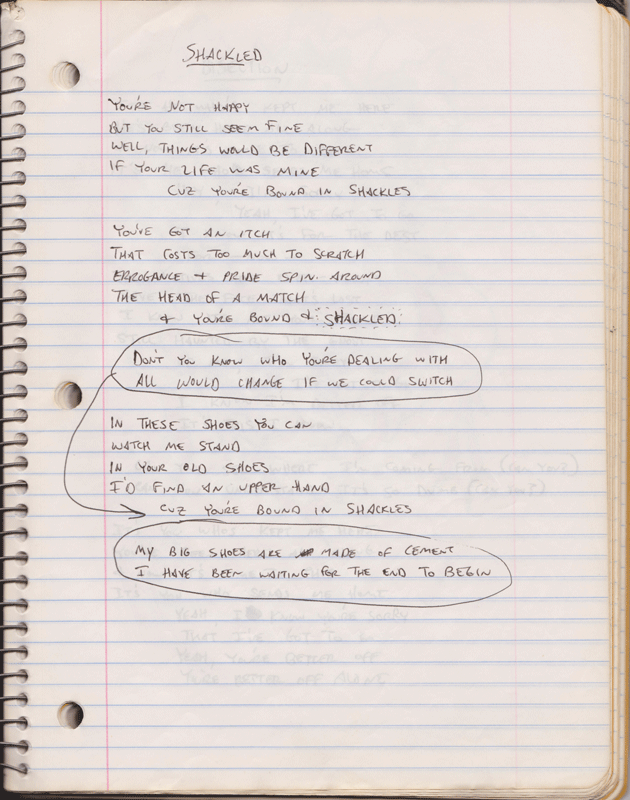 SHACKLED
YOU'RE NOT HAPPY
BUT YOU STILL SEEM FINE
WELL, THINGS WOULD BE DIFFERENT
IF YOUR LIFE WAS MINE
CUZ YOU'RE BOUND IN SHACKLES
YOU'VE GOT AN ITCH
THAT COSTS TOO MUCH TO SCRATCH
ERROGANCE + PRIDE SPIN AROUND
THE HEAD OF A MATCH
& YOU'RE BOUND & SHACKLED
DON'T YOU KNOW WHO YOU'RE DEALING WITH
ALL WOULD CHANGE IF WE COULD SWITCH
IN THESE SHOES YOU CAN
WATCH ME STAND
IN YOUR OLD SHOES
I'D FIND AN UPPER HAND
CUZ YOU'RE BOUND IN SHACKLES
MY BIG SHOES ARE MADE OF CEMENT
I HAVE BEEN WAITING FOR THE END TO BEGIN